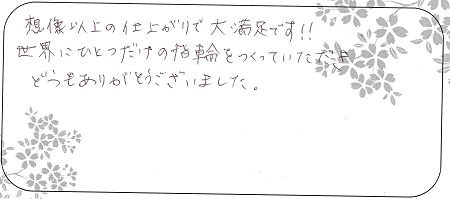 想像以上の仕上がりで大満足です!!
世界にひとつだけの指輪をつくっていただき
どうもありがとうございました。